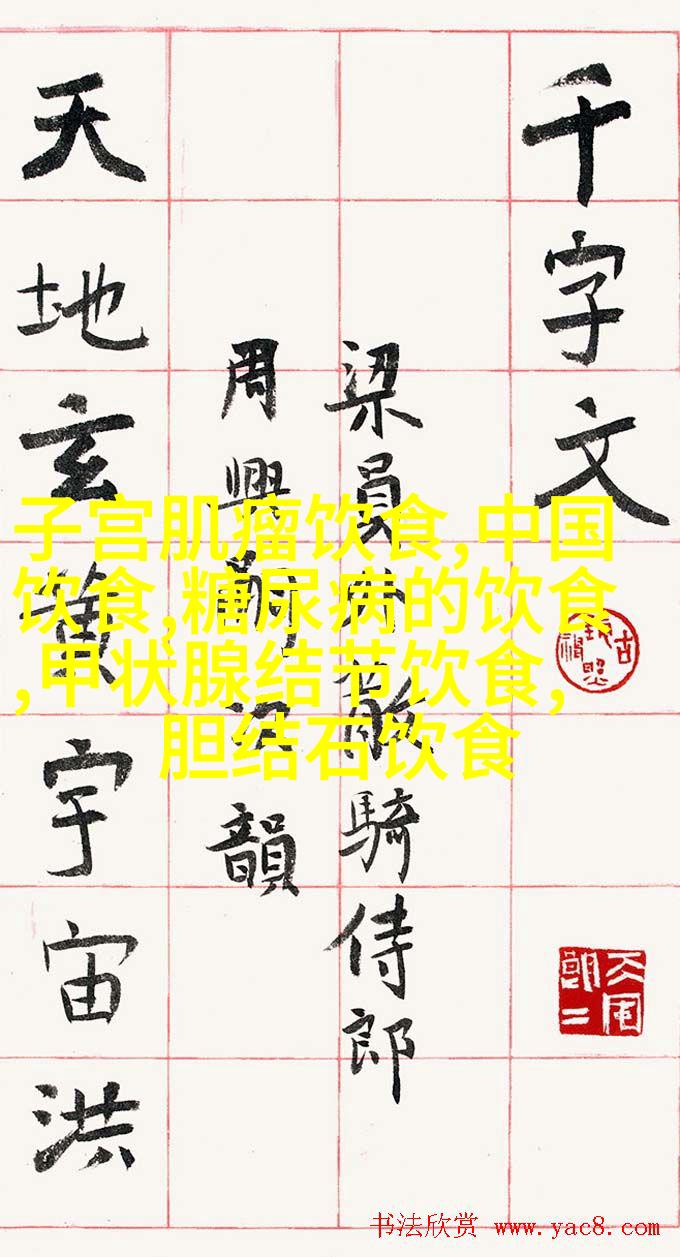 千字文
梁員外散騎侍郎
周興嗣次韻
天地玄黃宇宙洪
子宫肌瘤饮食,中国
饮食,糖尿病的饮食
,甲状腺结节饮食,
胆结石饮食
书法欣赏 www.yac8.com